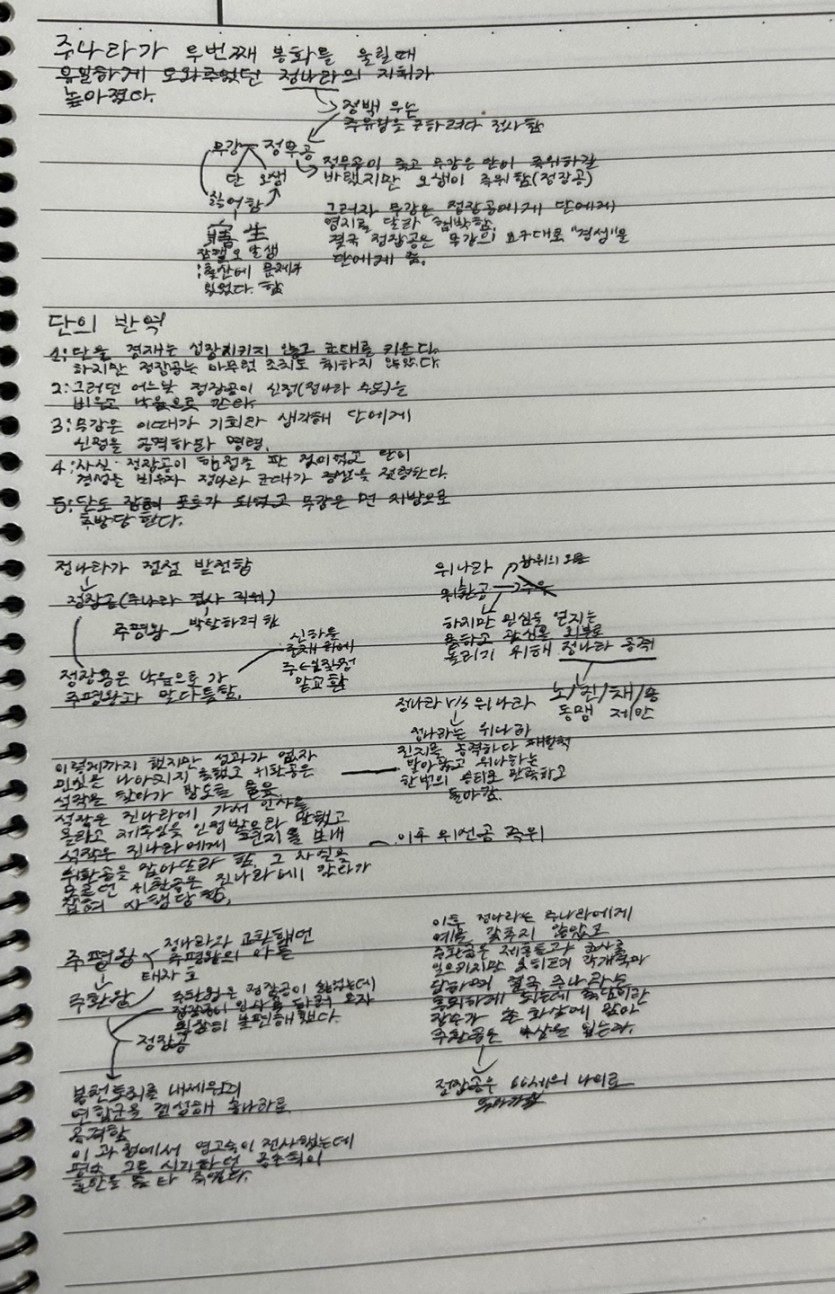 주나라가 두번째 봉화를 올릴때
유일하게 도와주었던 정나라의 지위가
높아졌다.
정백 우는
주유왕을 구하려다 전사함
무강 정무공
단 오생
싫어함
寤生
잠깰오 날생
:출산에 문제가
있었다. 함
정무공이 죽고 무강은 단이 즉위하길
바랬지만 오생이 즉위함(정장공)
그러자 무강은 정장공에게 단에게
영지를 달라 협박함.
결국 정장공은 무강의 요구대로 "경성"을
단에게 줌.
단의 반역
1:단을 경재는 성장시키지 않고 군대를 키운다.
하지만 정장공은 아무런 조치도 취하지 않았다.
2:그러던 어느날 정장공이 신정(정나라 수도)를
비우고 낙읍으로 간다.
3:무강은 이때가 기회라 생각해 단에게
신정을 공격하라 명령.
4:사실 정장공이 함정을 판 것이였고 단이
경성을 비우자 정나라 군대가 경성을 점령한다.
5:단도 잡혀 포로가 되었고 무강은 먼 지방으로
추방당한다.
정나라가 점점 발전함
정장공(주나라 경사 직위)
주평왕 박탈하려 함
정장공은 낙읍으로 가
주평왕과 말다툼함.
신하들
주나라와 정
맞교환
위나라
위환공 주우
하지만 민심을 얻지는
못하고 관심을 외부로
돌리기 위해 정나라 공격
노/진/채/송
동맹 제안
정나라 V/S 위나라
정나라는 위나라
진지를 공격하다
한번의 승리로 만족하고
돌아감.
이렇게까지 했지만 성과가 없자
민심은 나아지지 못했고 위환공은
석작을 찾아가 방도를 물음.
석작은 진나라에 가서 인사를
올리고 제후임을 인정받으라 말했고
석작은 진나라에게 편지를 보내
위환공을 잡아달라 함. 그 사실을
모르던 위환공은 진나라에 갔다가
잡혀 사형당함.
이후 위선공 즉위
주평왕
정나라와 교환했던
주평왕의 아들
태자 호
주환왕
주환왕은 정장공이 싫었는데
정장공이 인사를 하러 오자
굉장히 불편해했다.
정장공
봉천토죄를 내세우며
연합군을 결성해 송나라를
공격함
이 과정에서 영고숙이 전사했는데
평소 그를 시기하던 공손알이
혼란을 틈타 죽였다.
이후 정나라는 주나라에게
예를 갖추지 않았고
주환왕은 제후들과 군사를
일으키지만
당하며 결국 주나라는
후퇴하게 되는데 축담이란
장수가 쏜 화살에 맞아
주환왕은 부상을 입는다.
정장공은 66세의 나이로